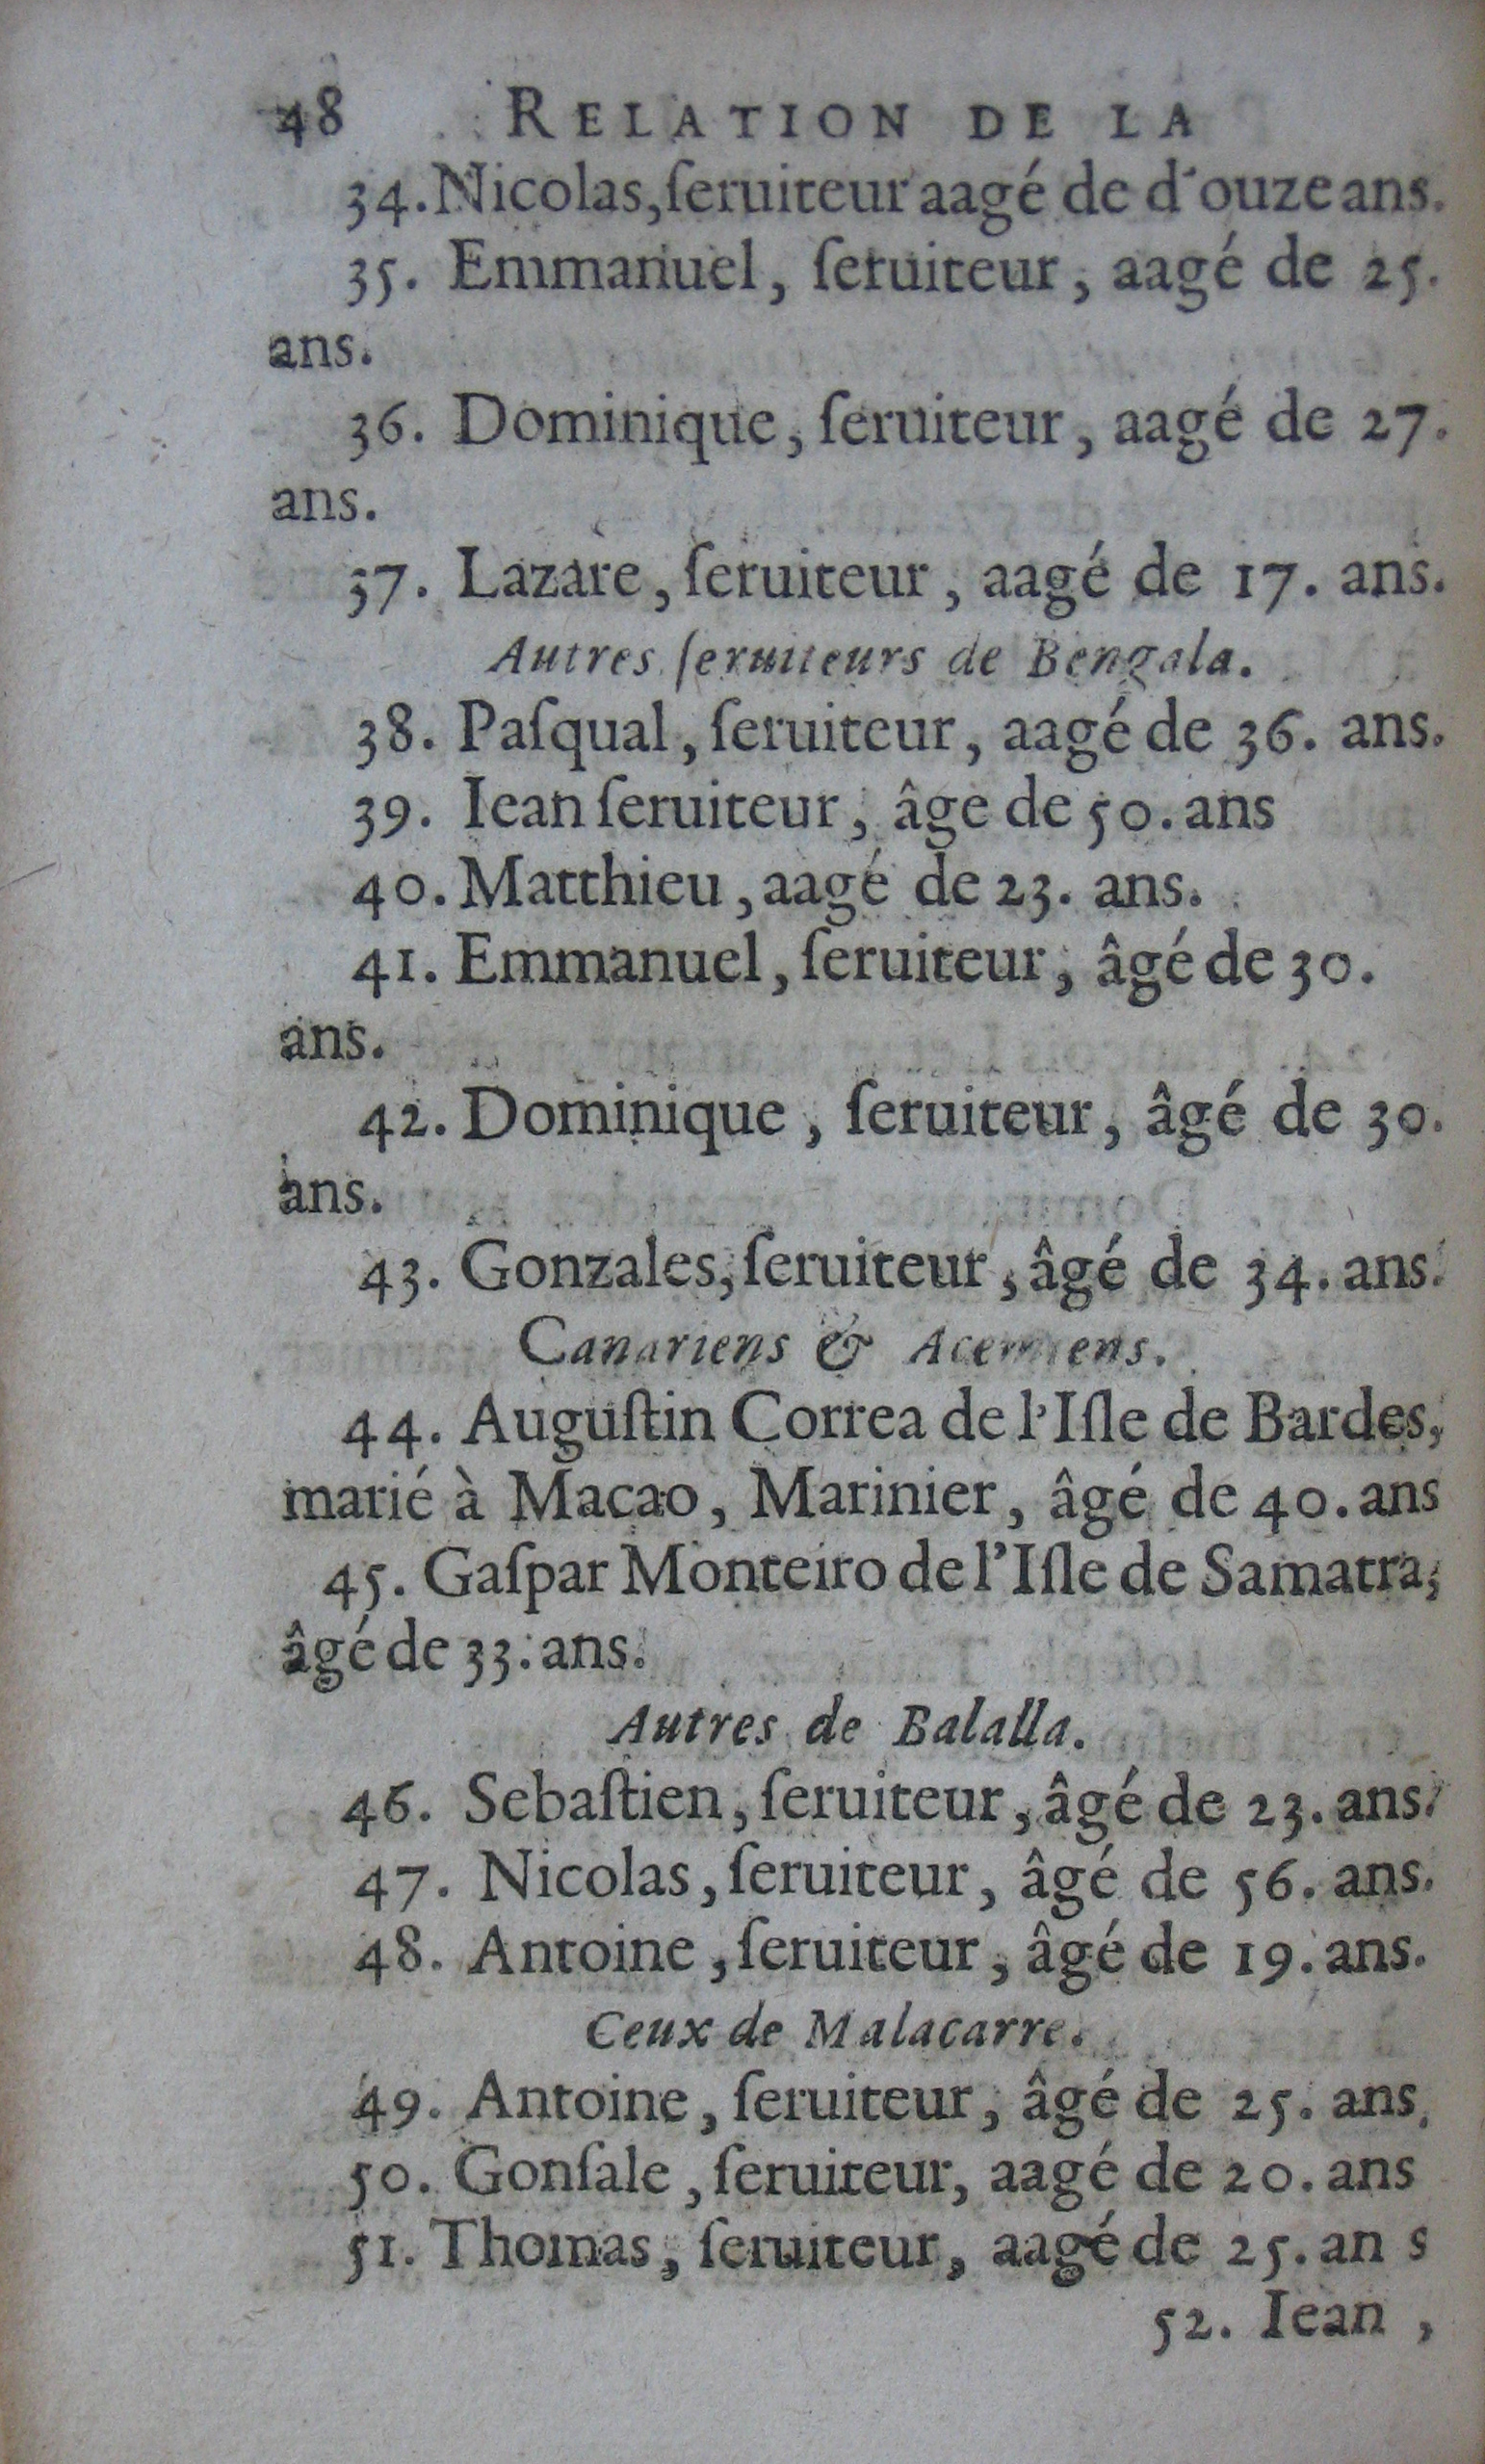 48 RELATION DE LA
34. Nicolas, ſeruiteur aagé de d'ouze ans.
35. Emmanuel, ſeruiteur, aagé de 25.
ans.
36. Dominique, ſeruiteur, aagé de 27.
ans.
37. Lazare, ſeruiteur, aagé de 17. ans.
Autres ſeruiteurs de Bengala.
38. Paſqual, ſeruiteur, aagé de 36. ans.
39. Iean ſeruiteur, âge de 50. ans
40. Matthieu, aagé de 23. ans.
41. Emmanuel, ſeruiteur, âgé de 30.
ans.
42. Dominique, ſeruiteur, âgé de 30.
ans.
43. Gonzales, ſeruiteur, âgé de 34. ans.
Canariens &
44. Auguſtin Correa de l'Iſle de Bardes,
marié à Macao, Marinier, âgé de 40. ans
45. Gaſpar Monteiro de l'Iſle de Samatra,
âgé de 33. ans.
Autres de Balalla.
46. Sebaſtien, ſeruiteur, âgé de 23. ans.
47. Nicolas, ſeruiteur, âgé de 56. ans.
48. Antoine, ſeruiteur, âgé de 19. ans.
Ceux de Malacarre.
49. Antoine, ſeruiteur, âgé de 25. ans.
50. Gonſale, ſeruiteur, aagé de 20. ans
51. Thomas, ſeruiteur, aagé de 25. an s
52. Iean,